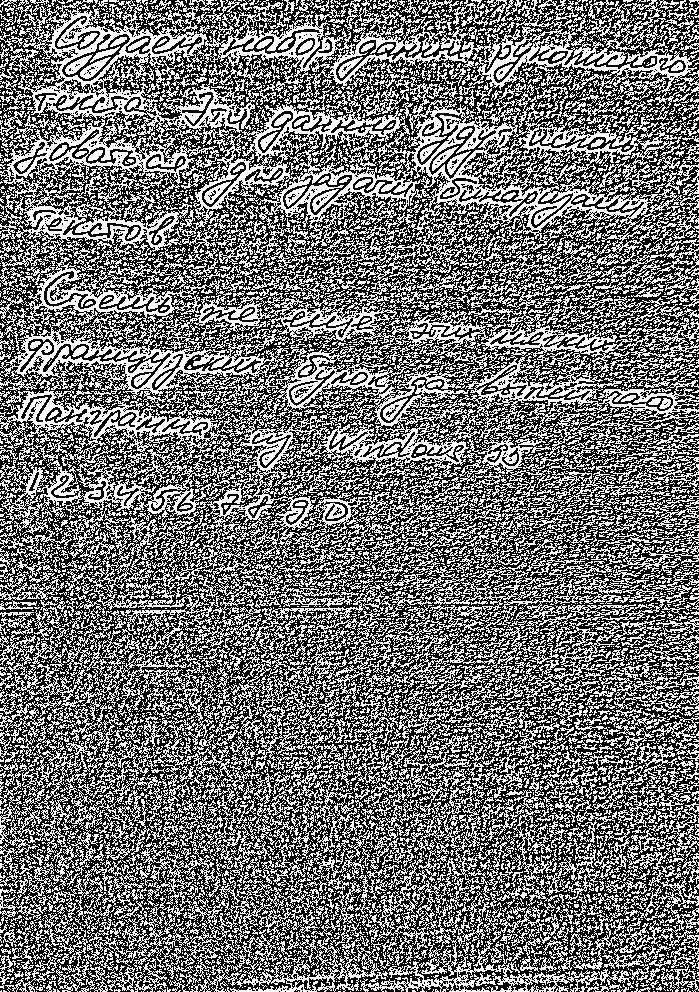 Создаем набор данных рукописного
текста. Эти данные будут исполь-
зоваться для задачи бинаризации
текстов
Съешь же еще этих мягких
французских булок да выпей чаю
Панграмма из Windows 95
1 2 3 4 5 6 7 8 9 0